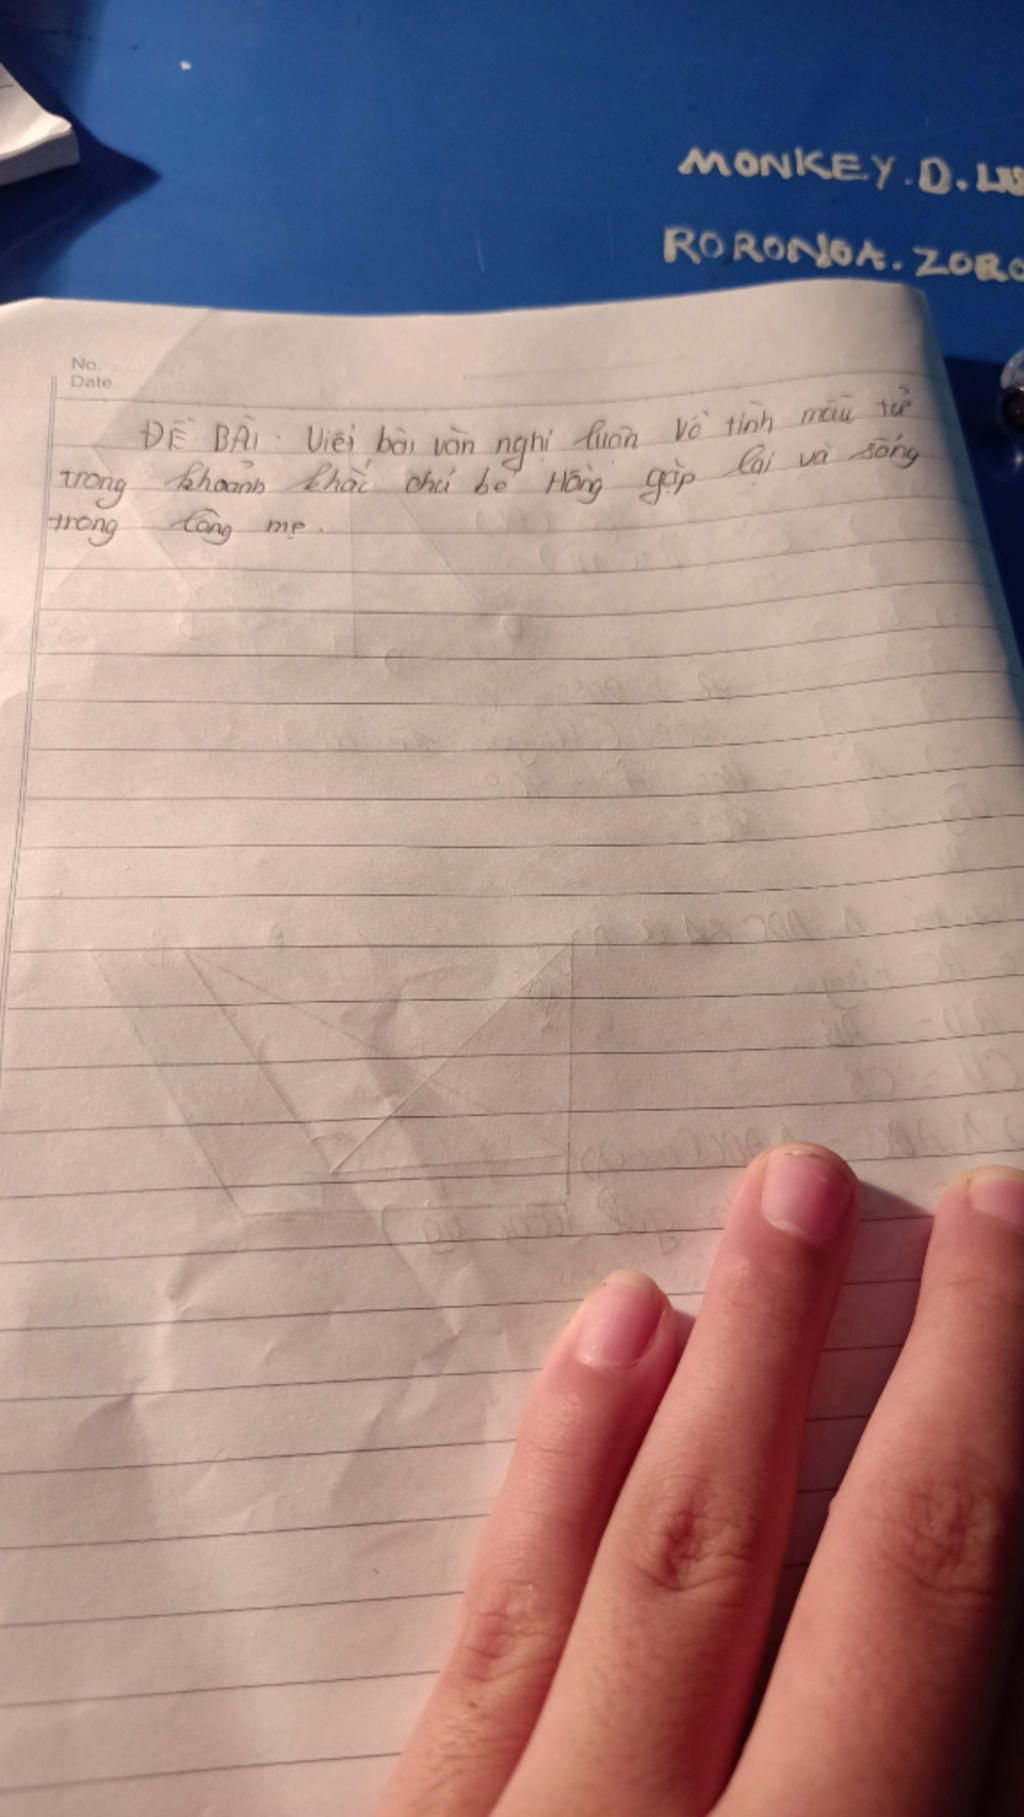 MONKEY.D.LU
RORONOA.ZORO
No.
Date
ĐỀ BÀI: Viết bài văn nghị luận về tình mẫu tử
trong khoảnh khắc chú bé Hồng gặp lại và sống
trong lòng mẹ.